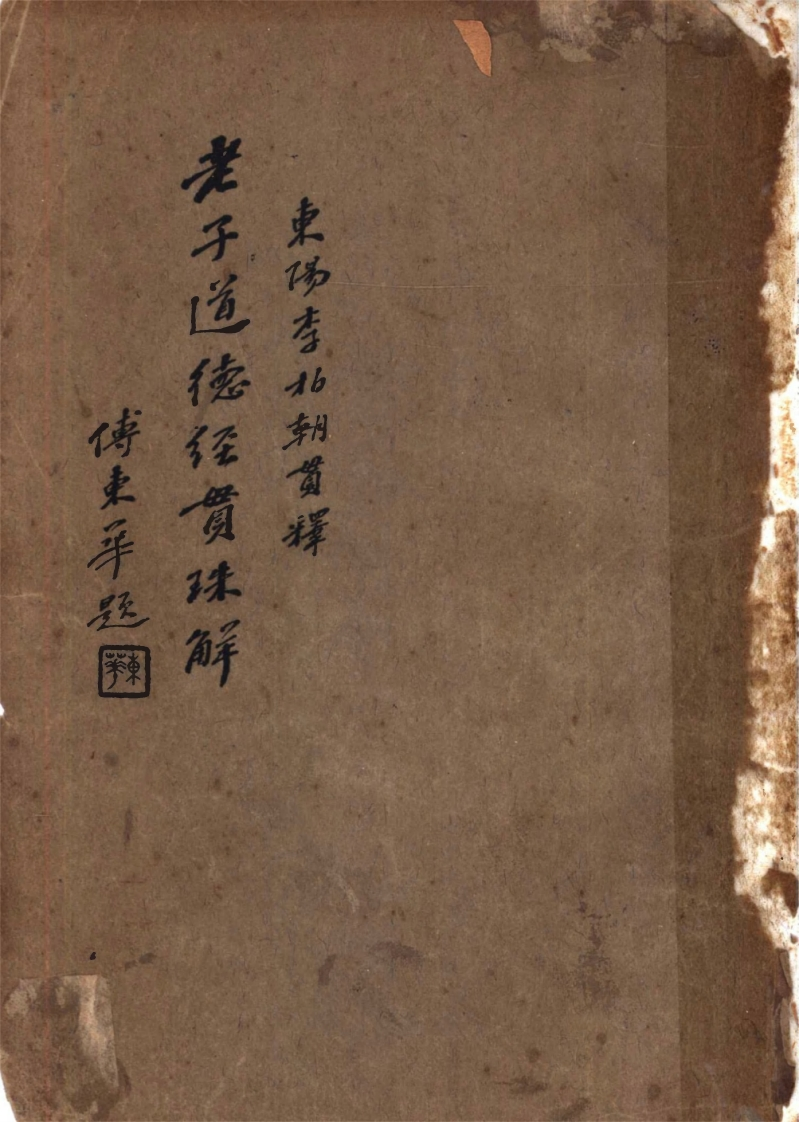 東陽李柏朝貫釋
老子道德經貫珠解
傅東華題
東華